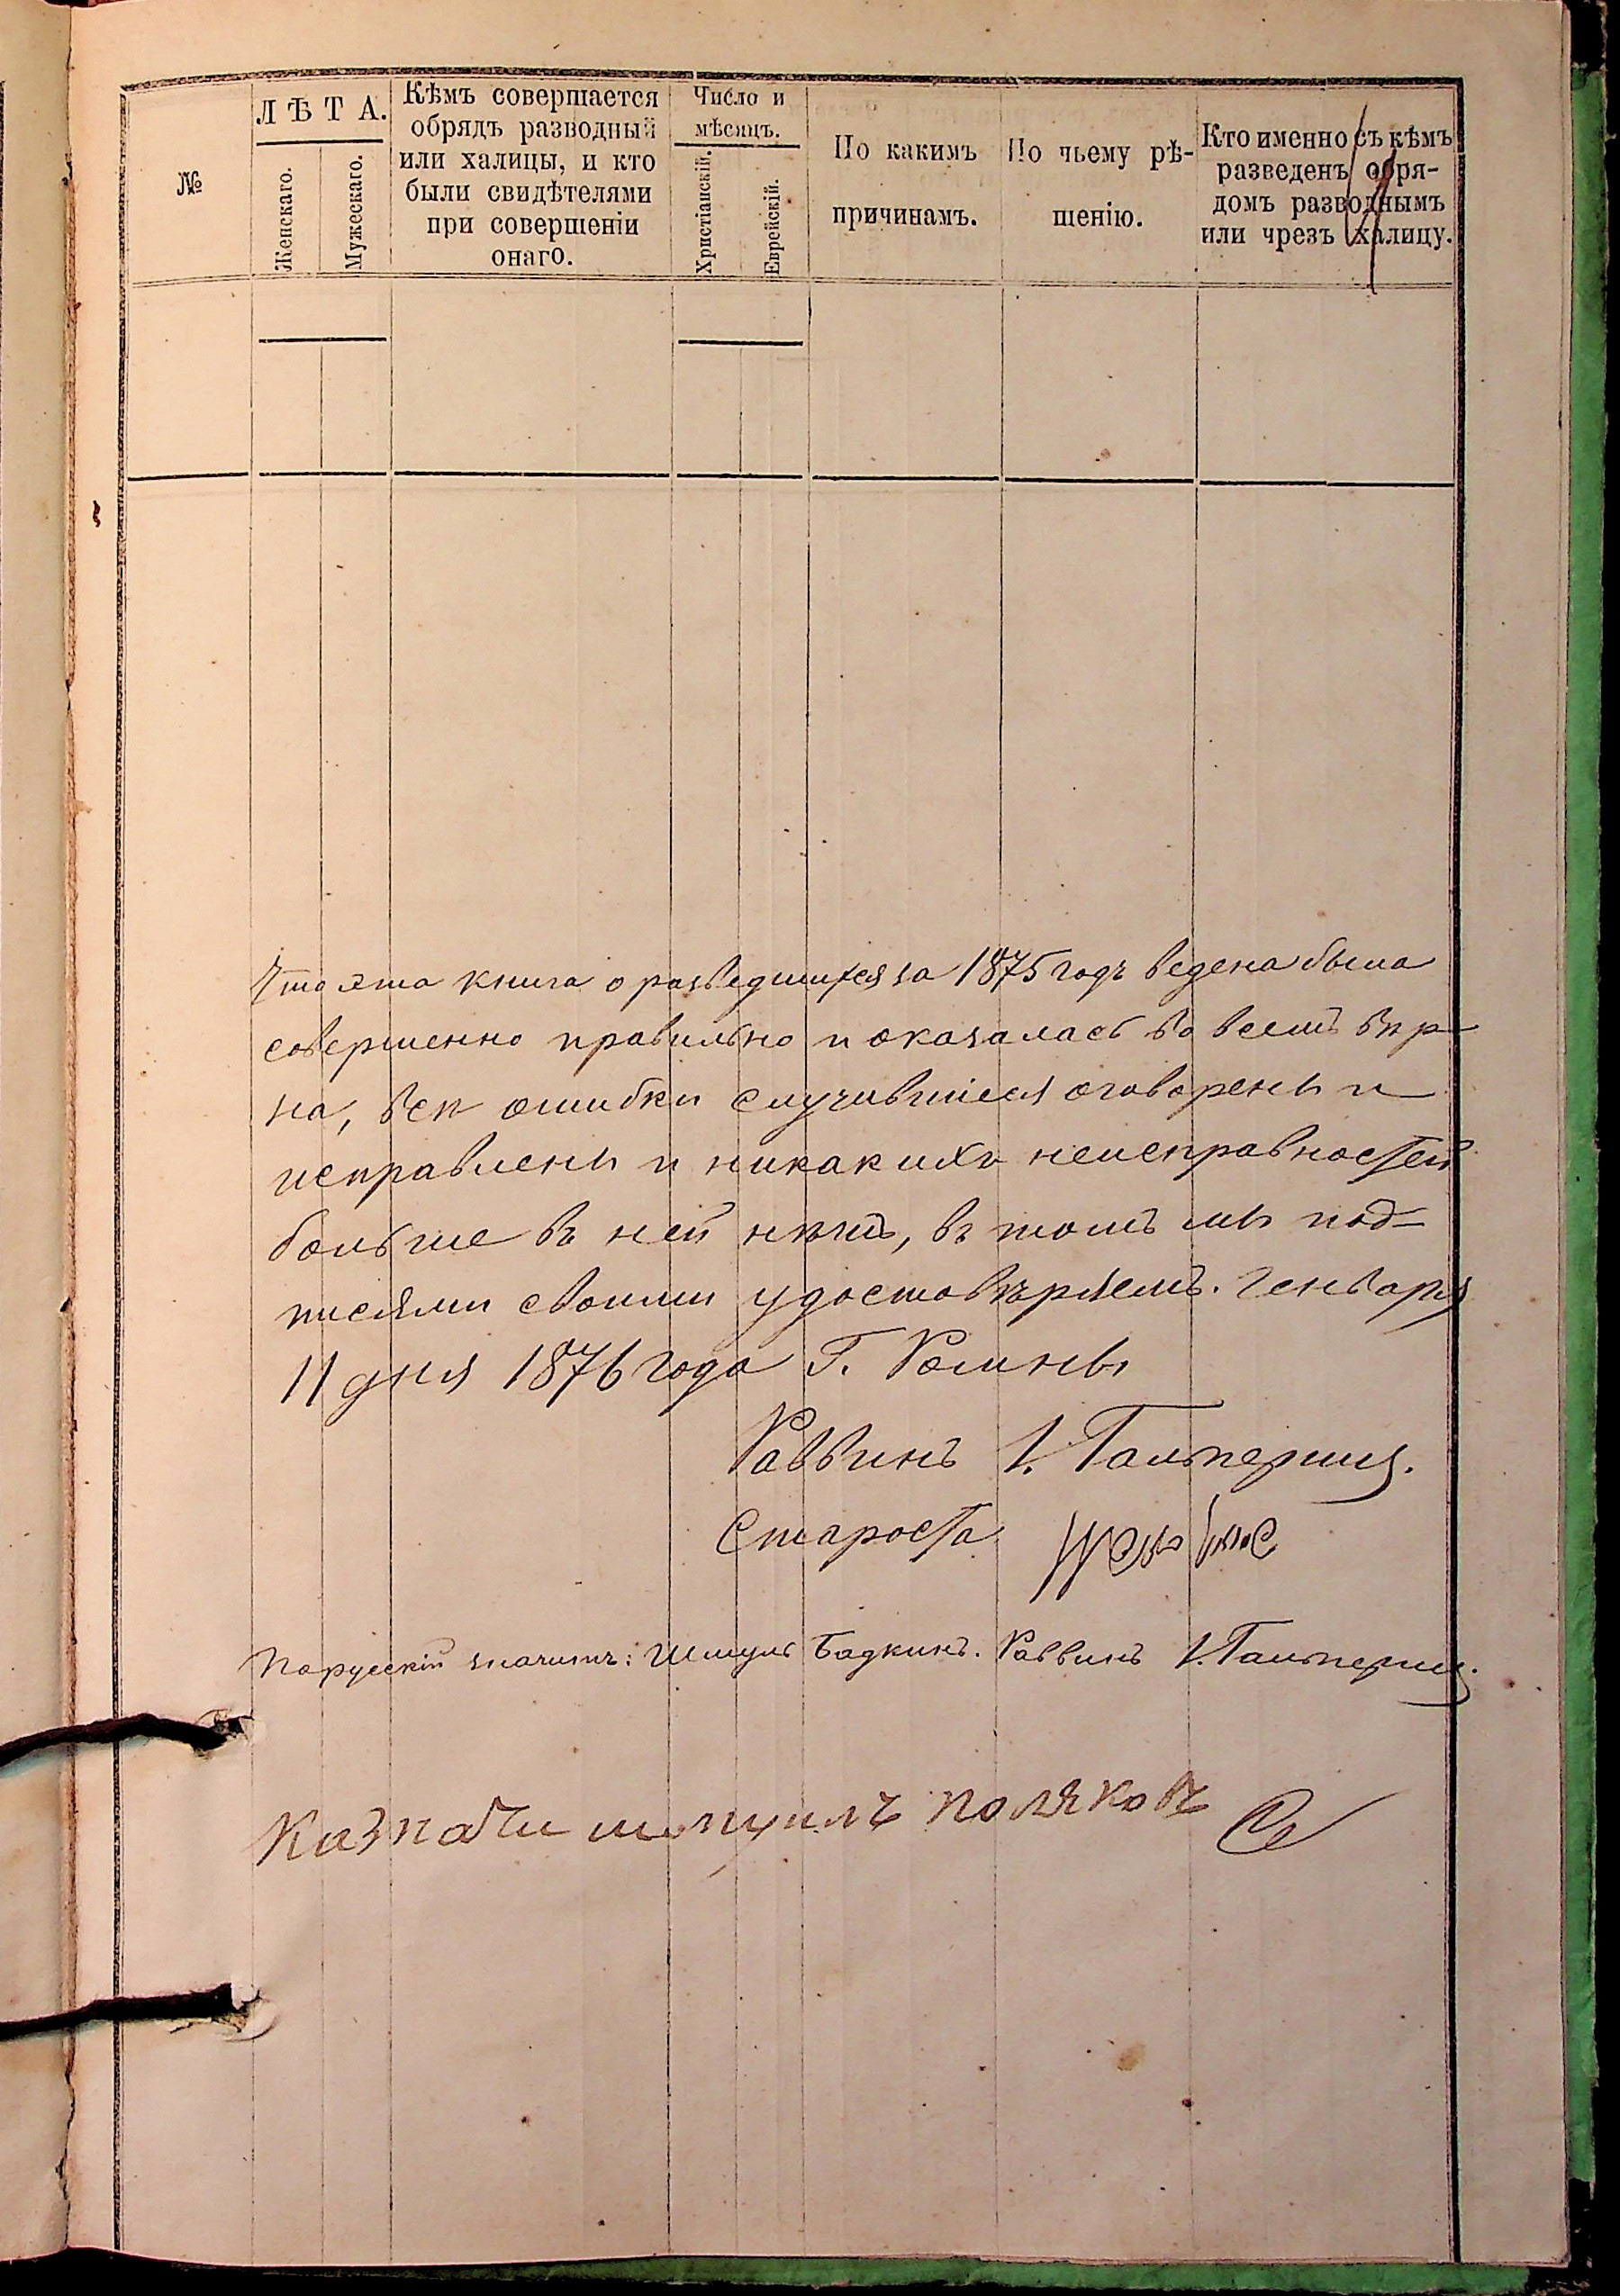 №
ЛѢТА.
Женскаго.
Мужескаго.
Кѣмъ совершается
обрядъ разводный
или халицы, и кто
были свидѣтелями
при совершеніи
онаго.
Число и
мѣсяцъ.
Христіанскій.
Еврейскій.
По какимъ
причинамъ.
По чьему рѣ-
шенію.
Кто именно съ кѣмъ
разведенъ обря-
домъ разводнымъ
или чрезъ халицу.
Что эта книга о разведшихся за 1875 годъ ведена была
совершенно правильно и оказалась во всемъ вѣр-
на, всѣ ошибки случившіеся оговорены и
исправлены и никакихъ неисправностей
больше въ ней нѣтъ, въ томъ мы под-
писями своими удостовѣряемъ. Генваря
11 дня 1876 года Г. Ромны
Раввинъ І. Гальперинъ.
Староста
Порусскій значитъ: Шмуль Бадкинъ. Раввинъ І. Гальперинъ.
Казначи шмуилъ поляковъ